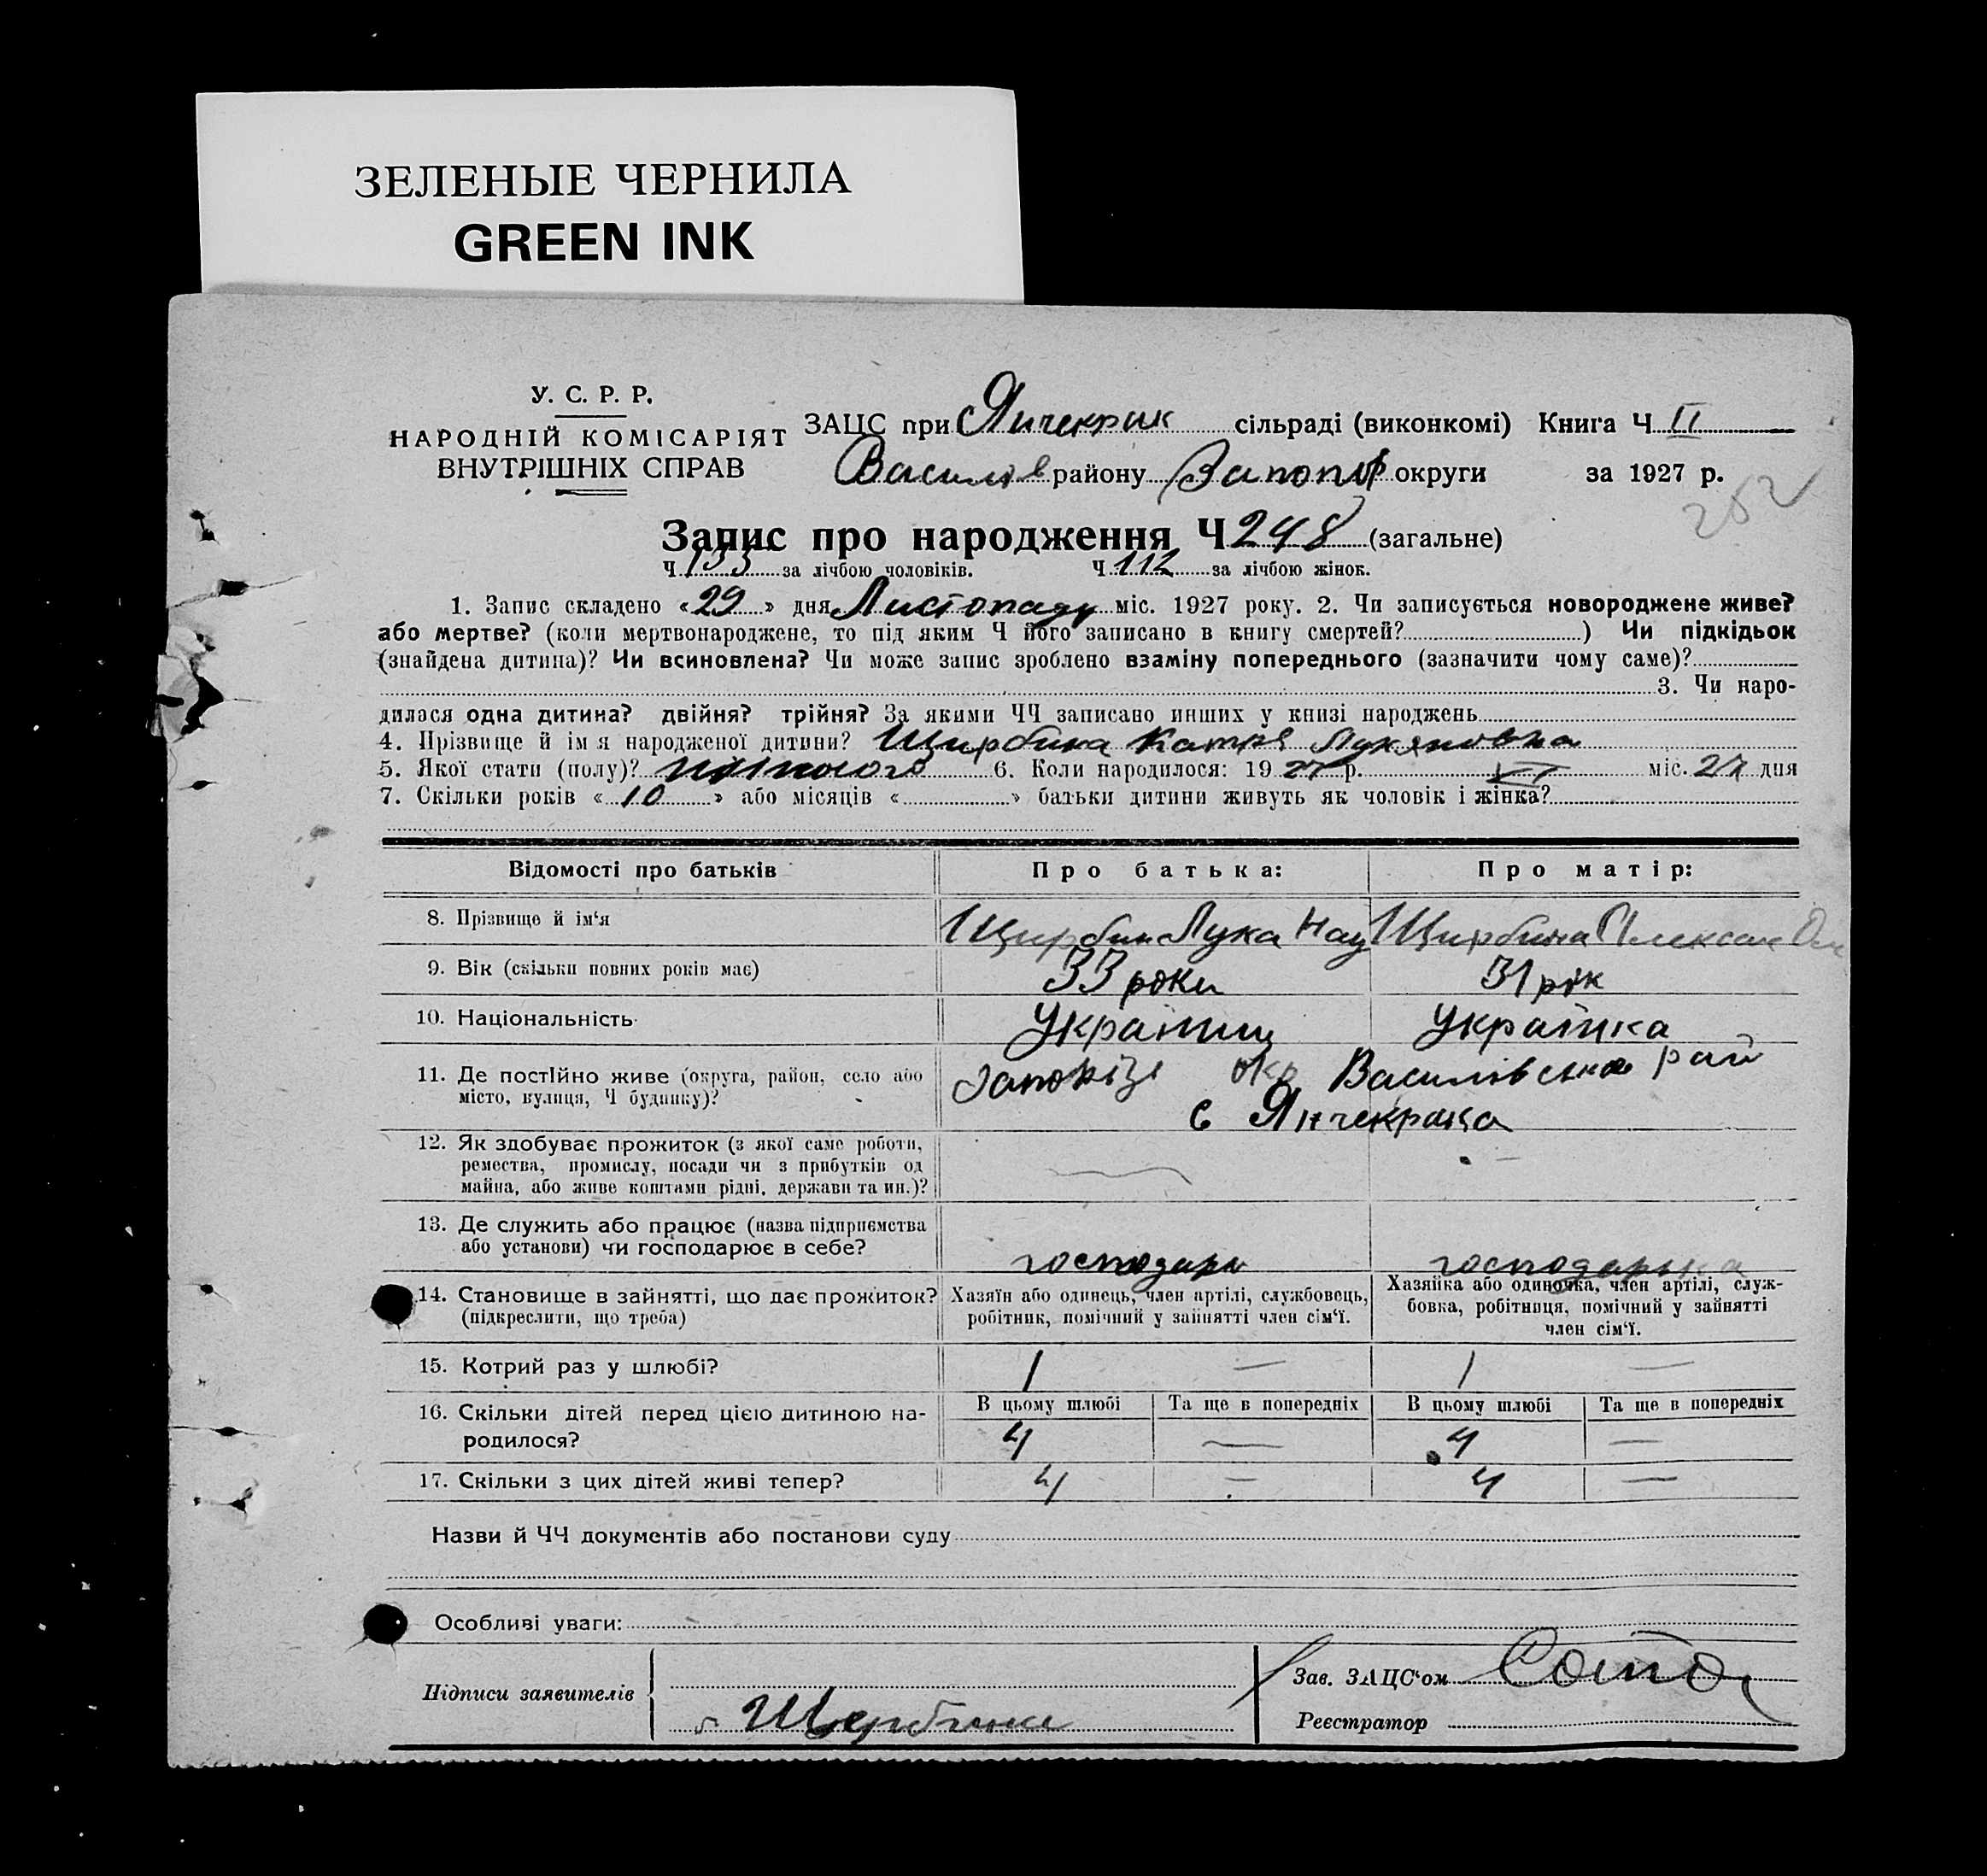 ЗЕЛЕНЫЕ ЧЕРНИЛА
GREEN INK
У. С. Р. Р.
НАРОДНІЙ КОМІСАРІЯТ
ВНУТРІШНІХ СПРАВ
ЗАЦС при Янчекрак сільраді (виконкомі) Книга Ч II
Василів району округи за 1927 р.
252
Запис про народження Ч 248 (загальне)
Ч 133 за лічбою чоловіків. Ч 112 за лічбою жінок.
1. Запис складено «29» дня Листопаду міс. 1927 року. 2. Чи записується новороджене живе?
або мертве? (коли мертвонароджене, то під яким Ч його записано в книгу смертей? ) Чи підкідьок
(знайдена дитина)? Чи всиновлена? Чи може запис зроблено взаміну попереднього (зазначити чому саме)?
3. Чи наро-
дилася одна дитина? двійня? трійня? За якими ЧЧ записано инших у книзі народжень
4. Прізвище й ім'я народженої дитини? Щирбина Катря Лукяновна
5. Якої стати (полу)? 6. Коли народилося: 1927 р. XI міс. 27 дня
7. Скільки років «10» або місяців « » батьки дитини живуть як чоловік і жінка?
Відомості про батьків
Про батька:
Про матір:
8. Прізвище й ім'я
Щирбин Лука Нау
Щирбина Олексан
9. Вік (скільки повних років має)
33 роки
31 рік
10. Національність
Українец
Українка
11. Де постійно живе (округа, район, село або
місто, вулиця, Ч будинку)?
Запоріз окр Василівська рай
с Янчекрака
12. Як здобуває прожиток (з якої саме роботи,
ремества, промислу, посади чи з прибутків од
майна, або живе коштами рідні, держави та ин.)?
13. Де служить або працює (назва підприємства
або установи) чи господарює в себе?
господарь
господарька
14. Становище в зайнятті, що дає прожиток?
(підкреслити, що треба)
Хазяїн або одинець, член артілі, службовець,
робітник, помічний у зайнятті член сім'ї.
Хазяйка або одиночка, член артілі, служ-
бовка, робітниця, помічний у зайнятті
член сім'ї.
15. Котрий раз у шлюбі?
1 — 1 —
16. Скільки дітей перед цією дитиною на-
родилося?
В цьому шлюбі Та ще в попередніх В цьому шлюбі Та ще в попередніх
4 — 4 —
17. Скільки з цих дітей живі тепер?
4 — 4 —
Назви й ЧЧ документів або постанови суду
Особливі уваги:
Підписи заявителів
Щербина
Зав. ЗАЦС'ом
Реєстратор